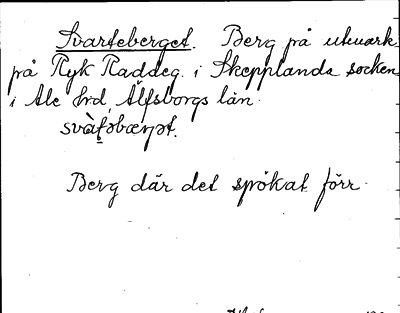 Svarteberget. Berg på utmark
på Ryk Raddeg. i Skepplanda socken
i Ale hrd, Älfsborgs län.
Berg där det spökat förr.